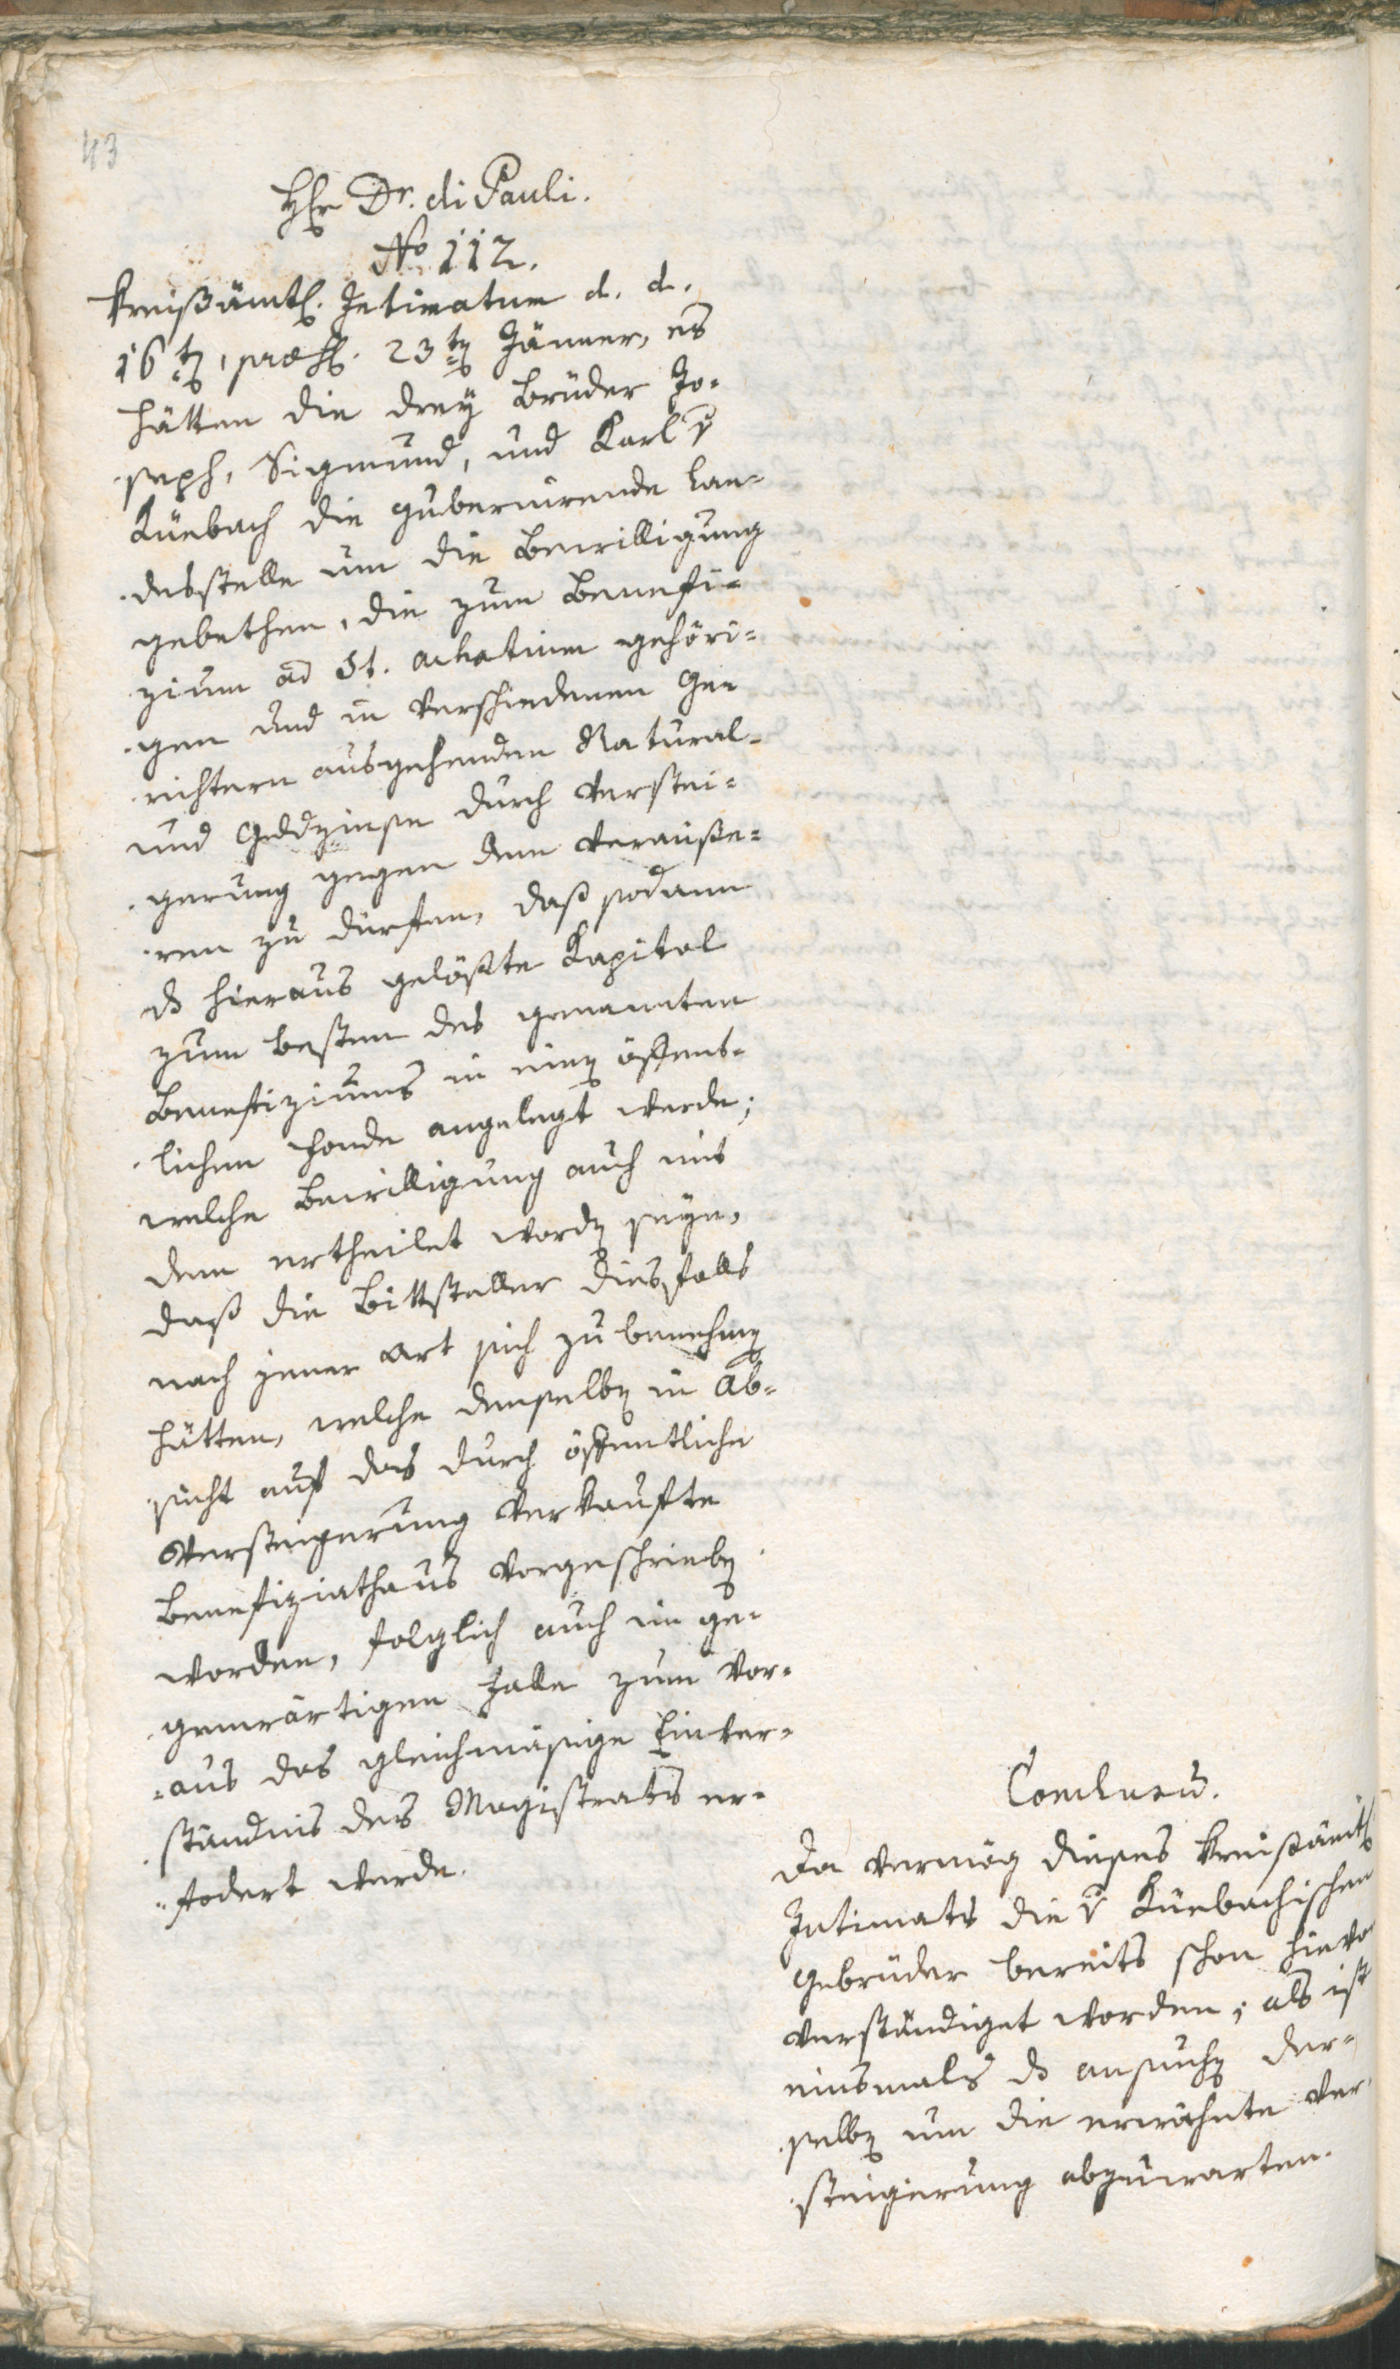 43
Hr Dr. di Pauli.
No 112.
Kreißämtl. Intimatum d. d.
16ten, præs. 23ten Jänner, es
hätten die drey Brüder Jo-
seph, Sigmund, und Karl v
Kuebach die gubernirende Lan-
desstelle um die Bewilligung
gebethen, die zum Benefi-
zium ad St. Achatium gehöri-
gen und in verschiedenen Ge-
richtern ausgehenden Natural-
und Geldzinse durch Verstei-
gerung gegen dem veräuße-
ren zu dürfen, daß sodann
ds hieraus gelößte Kapital
zum besten des genannten
Benefiziums in einen öffent-
lichen Fonde angelegt werde;
welche Bewilligung auch mit
dem ertheilet worden seye,
daß die Bittsteller diesfalls
nach jener Art sich zu benehmen
hätten, welche denselben in Ab-
sicht auf das durch öffentliche
Versteigerung verkaufte
Benefiziathaus vorgeschrieben
worden, folglich auch im ge-
genwärtigen Falle zum vor-
aus das gleichmäsige Einver-
ständnis des Magistrats er-
fodert werde.
Conclusum.
Da vermög dieses Kreisämtl
Intimats die v Kuebachischen
Gebrüder bereits schon hievo
verständiget worden; als ist
einsmals ds ansuchen der-
selben um die erwähnte Ver-
steigerung abzuwarten.